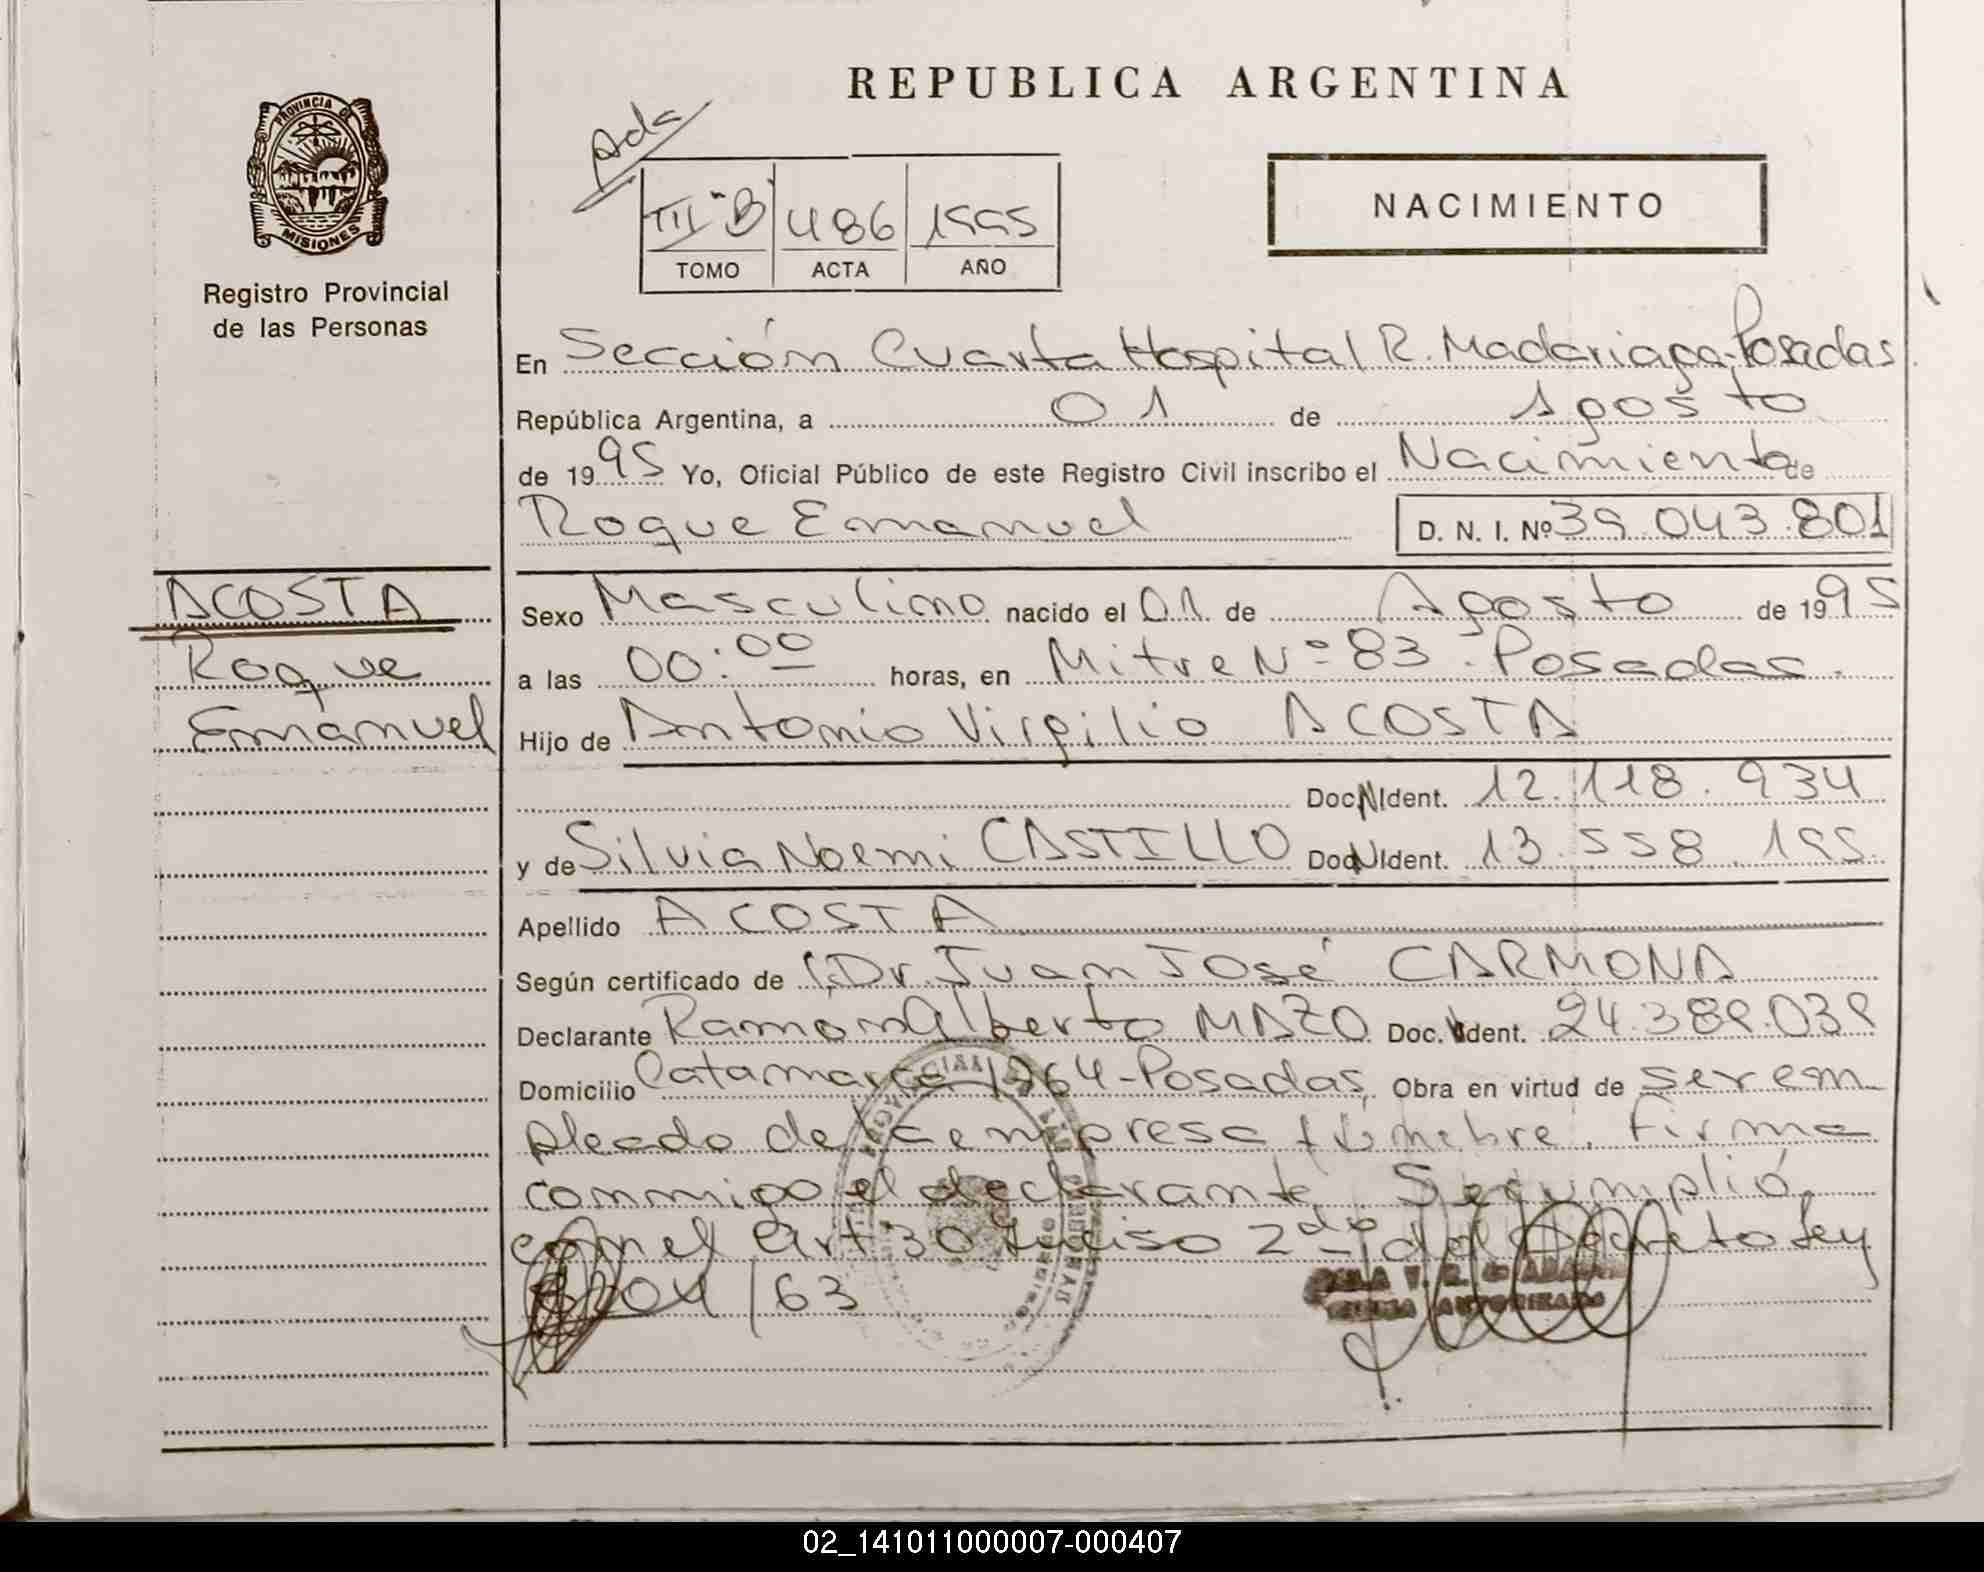 PROVINCIA DE
MISIONES
Registro Provincial
de las Personas
ACOSTA
Roque
Emanuel
REPUBLICA ARGENTINA
Ada
III "B" 486 1995
TOMO ACTA AÑO
NACIMIENTO
En Sección Cuarta Hospital R. Madariaga-Posadas
República Argentina, a 01 de Agosto
de 1995 Yo, Oficial Público de este Registro Civil inscribo el Nacimiento de
Roque Emanuel D. N. I. Nº 39.043.801
Sexo Masculino nacido el 01 de Agosto de 1995
a las 00:00 horas, en Mitre Nº 83 - Posadas.
Hijo de Antonio Virgilio ACOSTA
Doc. N Ident. 12.118.934
y de Silvia Noemi CASTILLO Doc. N Ident. 13.558.195
Apellido ACOSTA
Según certificado de Dr. Juan José CARMONA
Declarante Ramón Alberto MAZO Doc. Ident. 24.389.039
Domicilio Catamarca 1764-Posadas, Obra en virtud de ser em
pleado de la empresa fúnebre. Firma
conmigo el declarante Se cumplió
con el Art 30 Inciso 2do del Decreto Ley
8204/63
AUTORIZADA
02_141011000007-000407